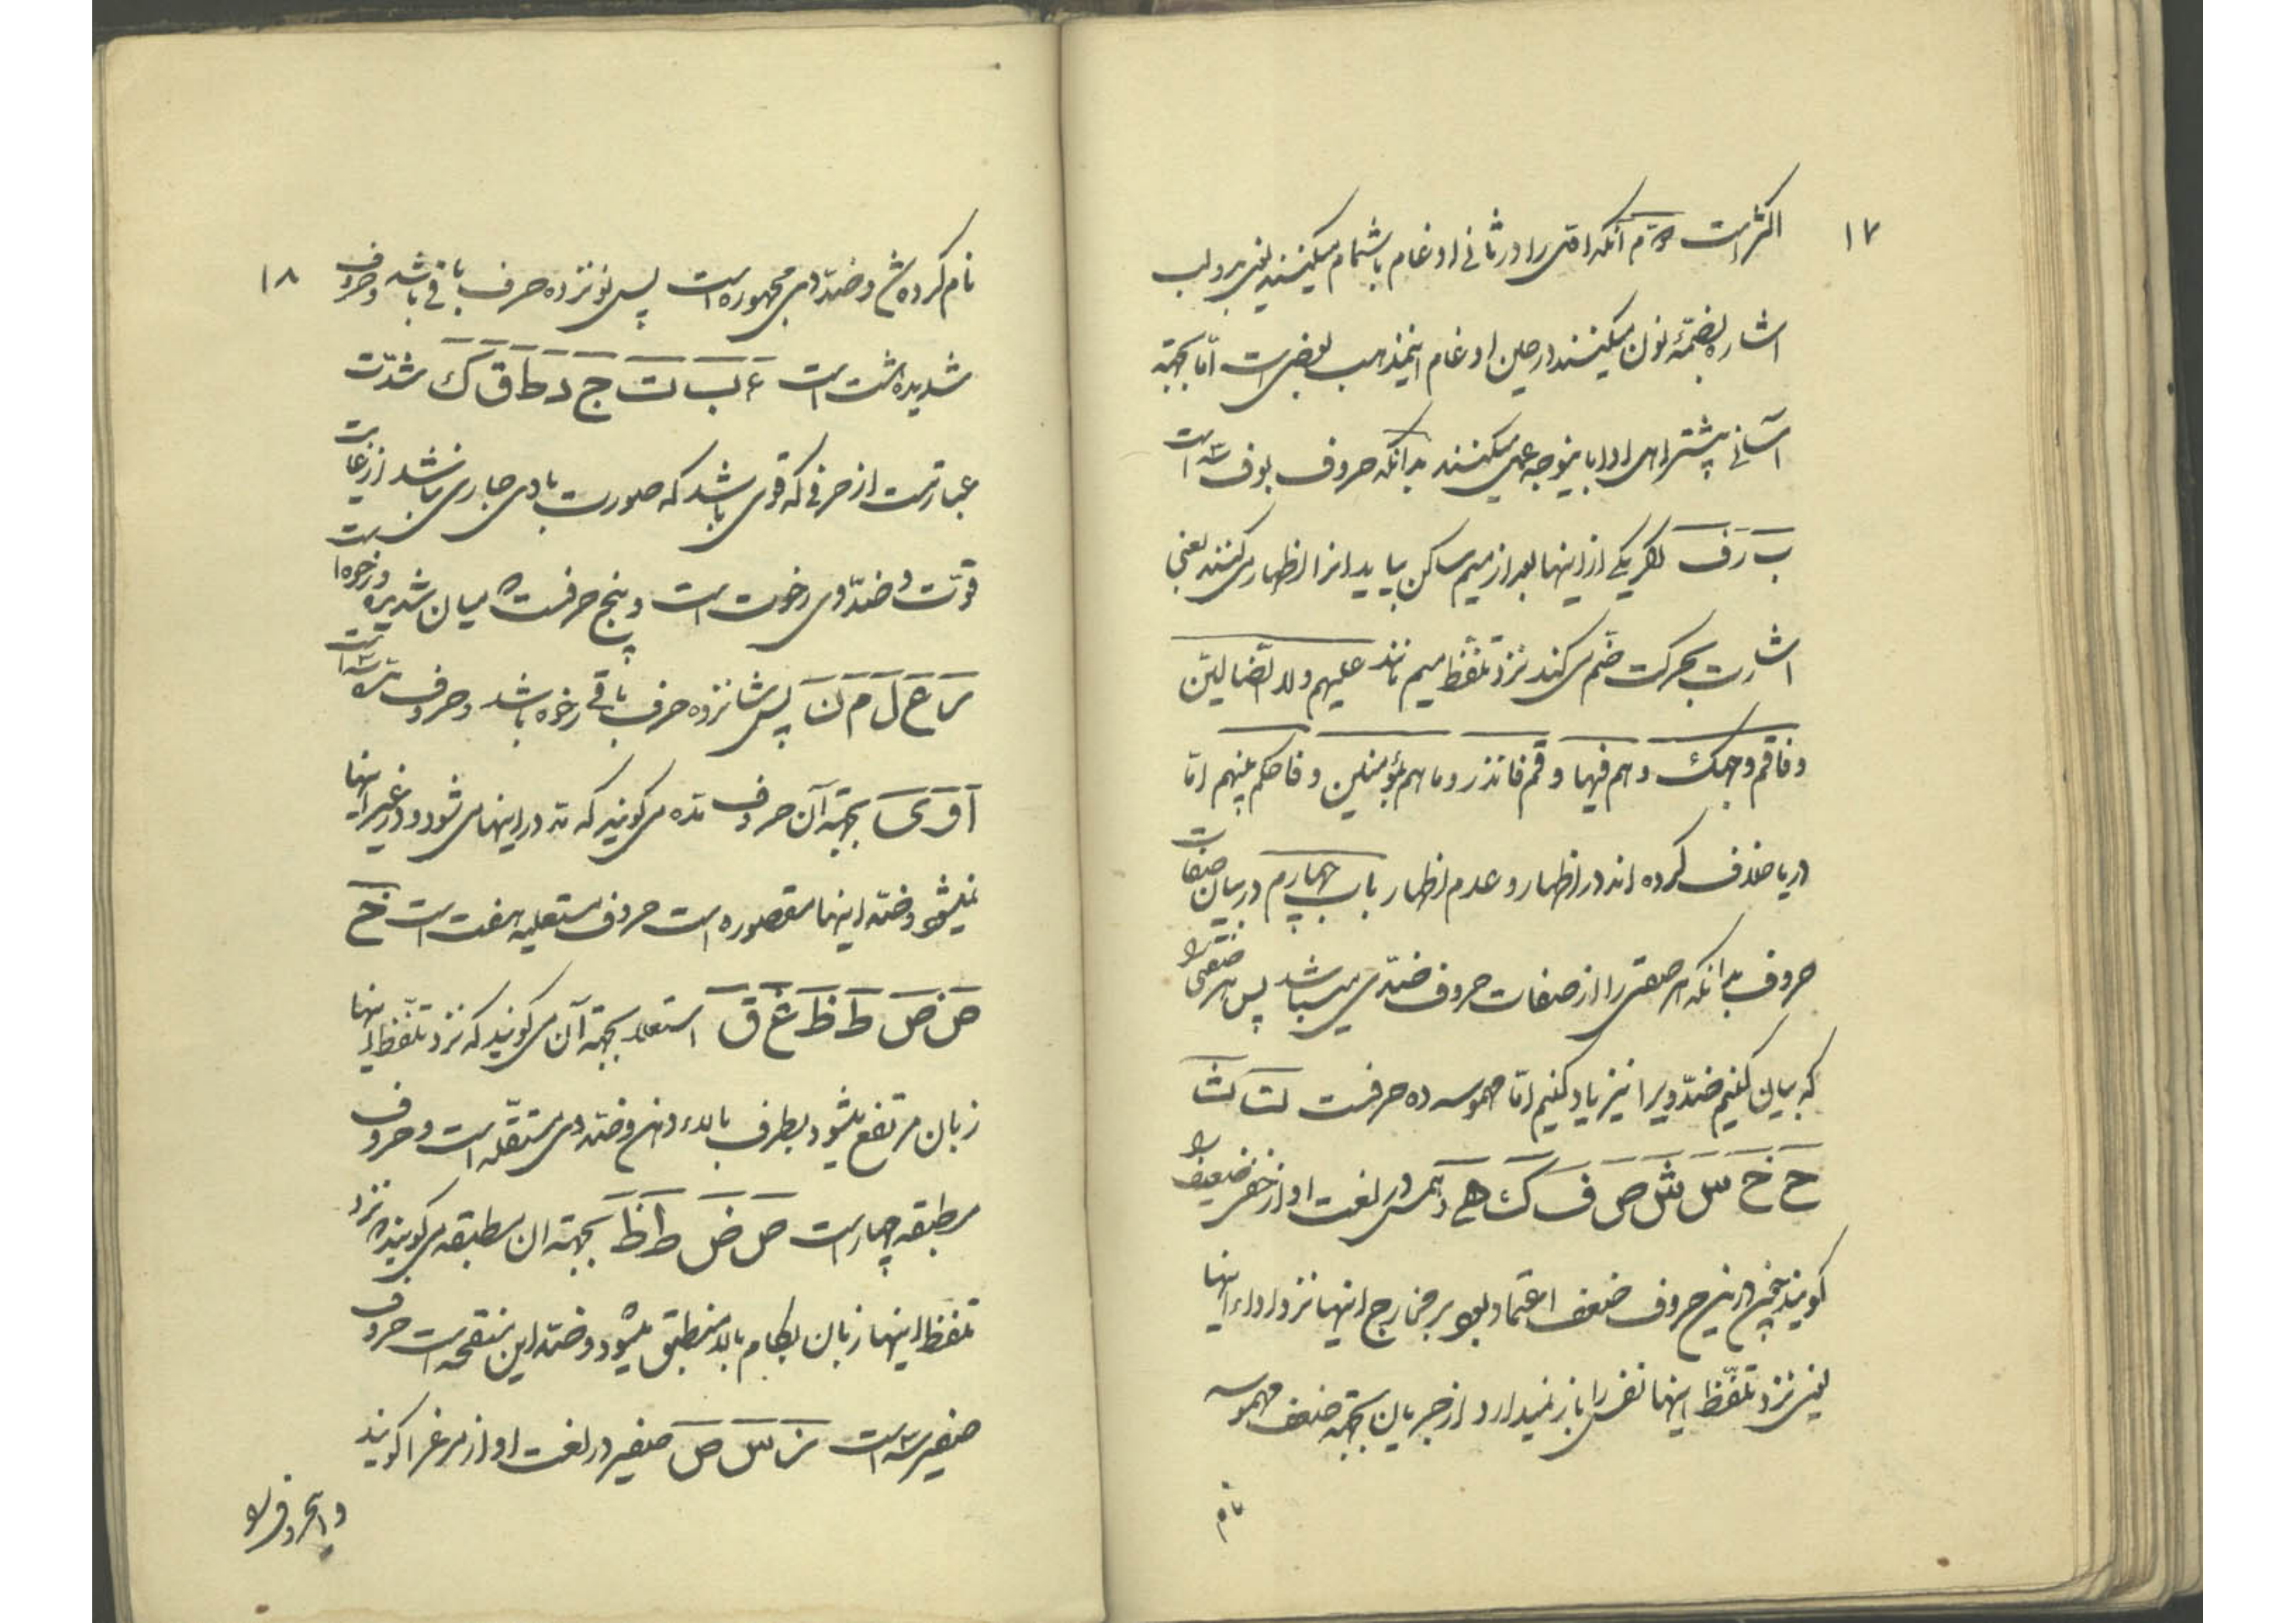 ۱۷
اکثر است دوم آنکه اولی را در ثانی ادغام باشمام میکنند یعنی بدو لب
اشاره بضمّهٔ نون میکنند در حین ادغام اینمذهب بعضی است امّا بجهته
آسانی پیشتر اهل ادا باینوجه عمل میکنند بدآنکه حروف بوف سه است
بَ وَ فَ اگر یکی از اینها بعد از میم ساکن بیاید انرا اظهار می کنند یعنی
اشارت بحرکت ضمّ می کند نزد تلفّظ میم مانند علیهم ولا الضّالین
و فاقم وجهک و هم فیها و قم فانذر و ما هم بمؤمنین و فاحکم بینهم امّا
در یا خلاف کرده اند در اظهار و عدم اظهار باب چهارم در بیان صفات
حروف بدانکه هر صفتی را از صفات حروف ضدّی میباشد پس هر صفتی را
که بیان کنیم ضدّ ویرا نیز یاد کنیم امّا مهموسه ده حرفست تَ ثَ
حَ خَ سَ شَ صَ فَ كَ هَ و همس در لغت اواز خفی ضعیف را
کویند چنین درین حروف ضعف اعتماد بود بر مخارج اینها نزد اداء اینها
یعنی نزد تلفّظ اینها نفس را باز نمیدارد از جریان بجهته ضعف مهموسه
نام
۱۸
نام کرده شد و ضدّ وی مجهوره است پس نوزده حرف باقی باشد و حروف
شدیده هشت است ءَ بَ تَ جَ دَ طَ قَ كَ شدّت
عبارتست از حرفی که قوی باشد که صورت با وی جاری نباشد از غایت
قوّت و ضدّ وی رخوت است و پنج حرفست که میان شدیده و رخوه است
رَ عَ لَ مَ نَ پس شانزده حرف باقی رخوه باشد و حروف مدّه سه است
آ وَ یَ بجهته آن حروف مدّه می کویند که مد در اینها می شود و در غیر اینها
نمیشود و ضدّ اینها مقصوره است حروف مستعلیه هفت است خَ
صَ ضَ طَ ظَ غَ قَ استعلا بجهته آن می کویند که نزد تلفّظ اینها
زبان مرتفع میشود بطرف بالاء دهن و ضدّ وی مستفله است و حروف
مطبقه چهار است صَ ضَ طَ ظَ بجهته ان مطبقه می کویند که نزد
تلفظ اینها زبان بکام بالا منطبق میشود و ضدّ این منفتحه است حروف
صفیر سه است زَ سَ صَ صفیر در لغت اواز مرغ را کویند
و اینحروف را